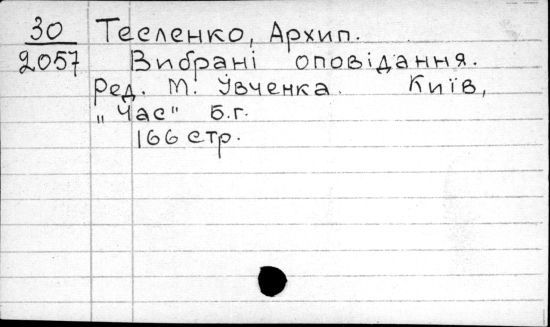 30 Тесленко, Архип.
2057 Вибрані оповідання.
Ред. М. Ївченка. Київ,
„Час" б.г.
166 стр.